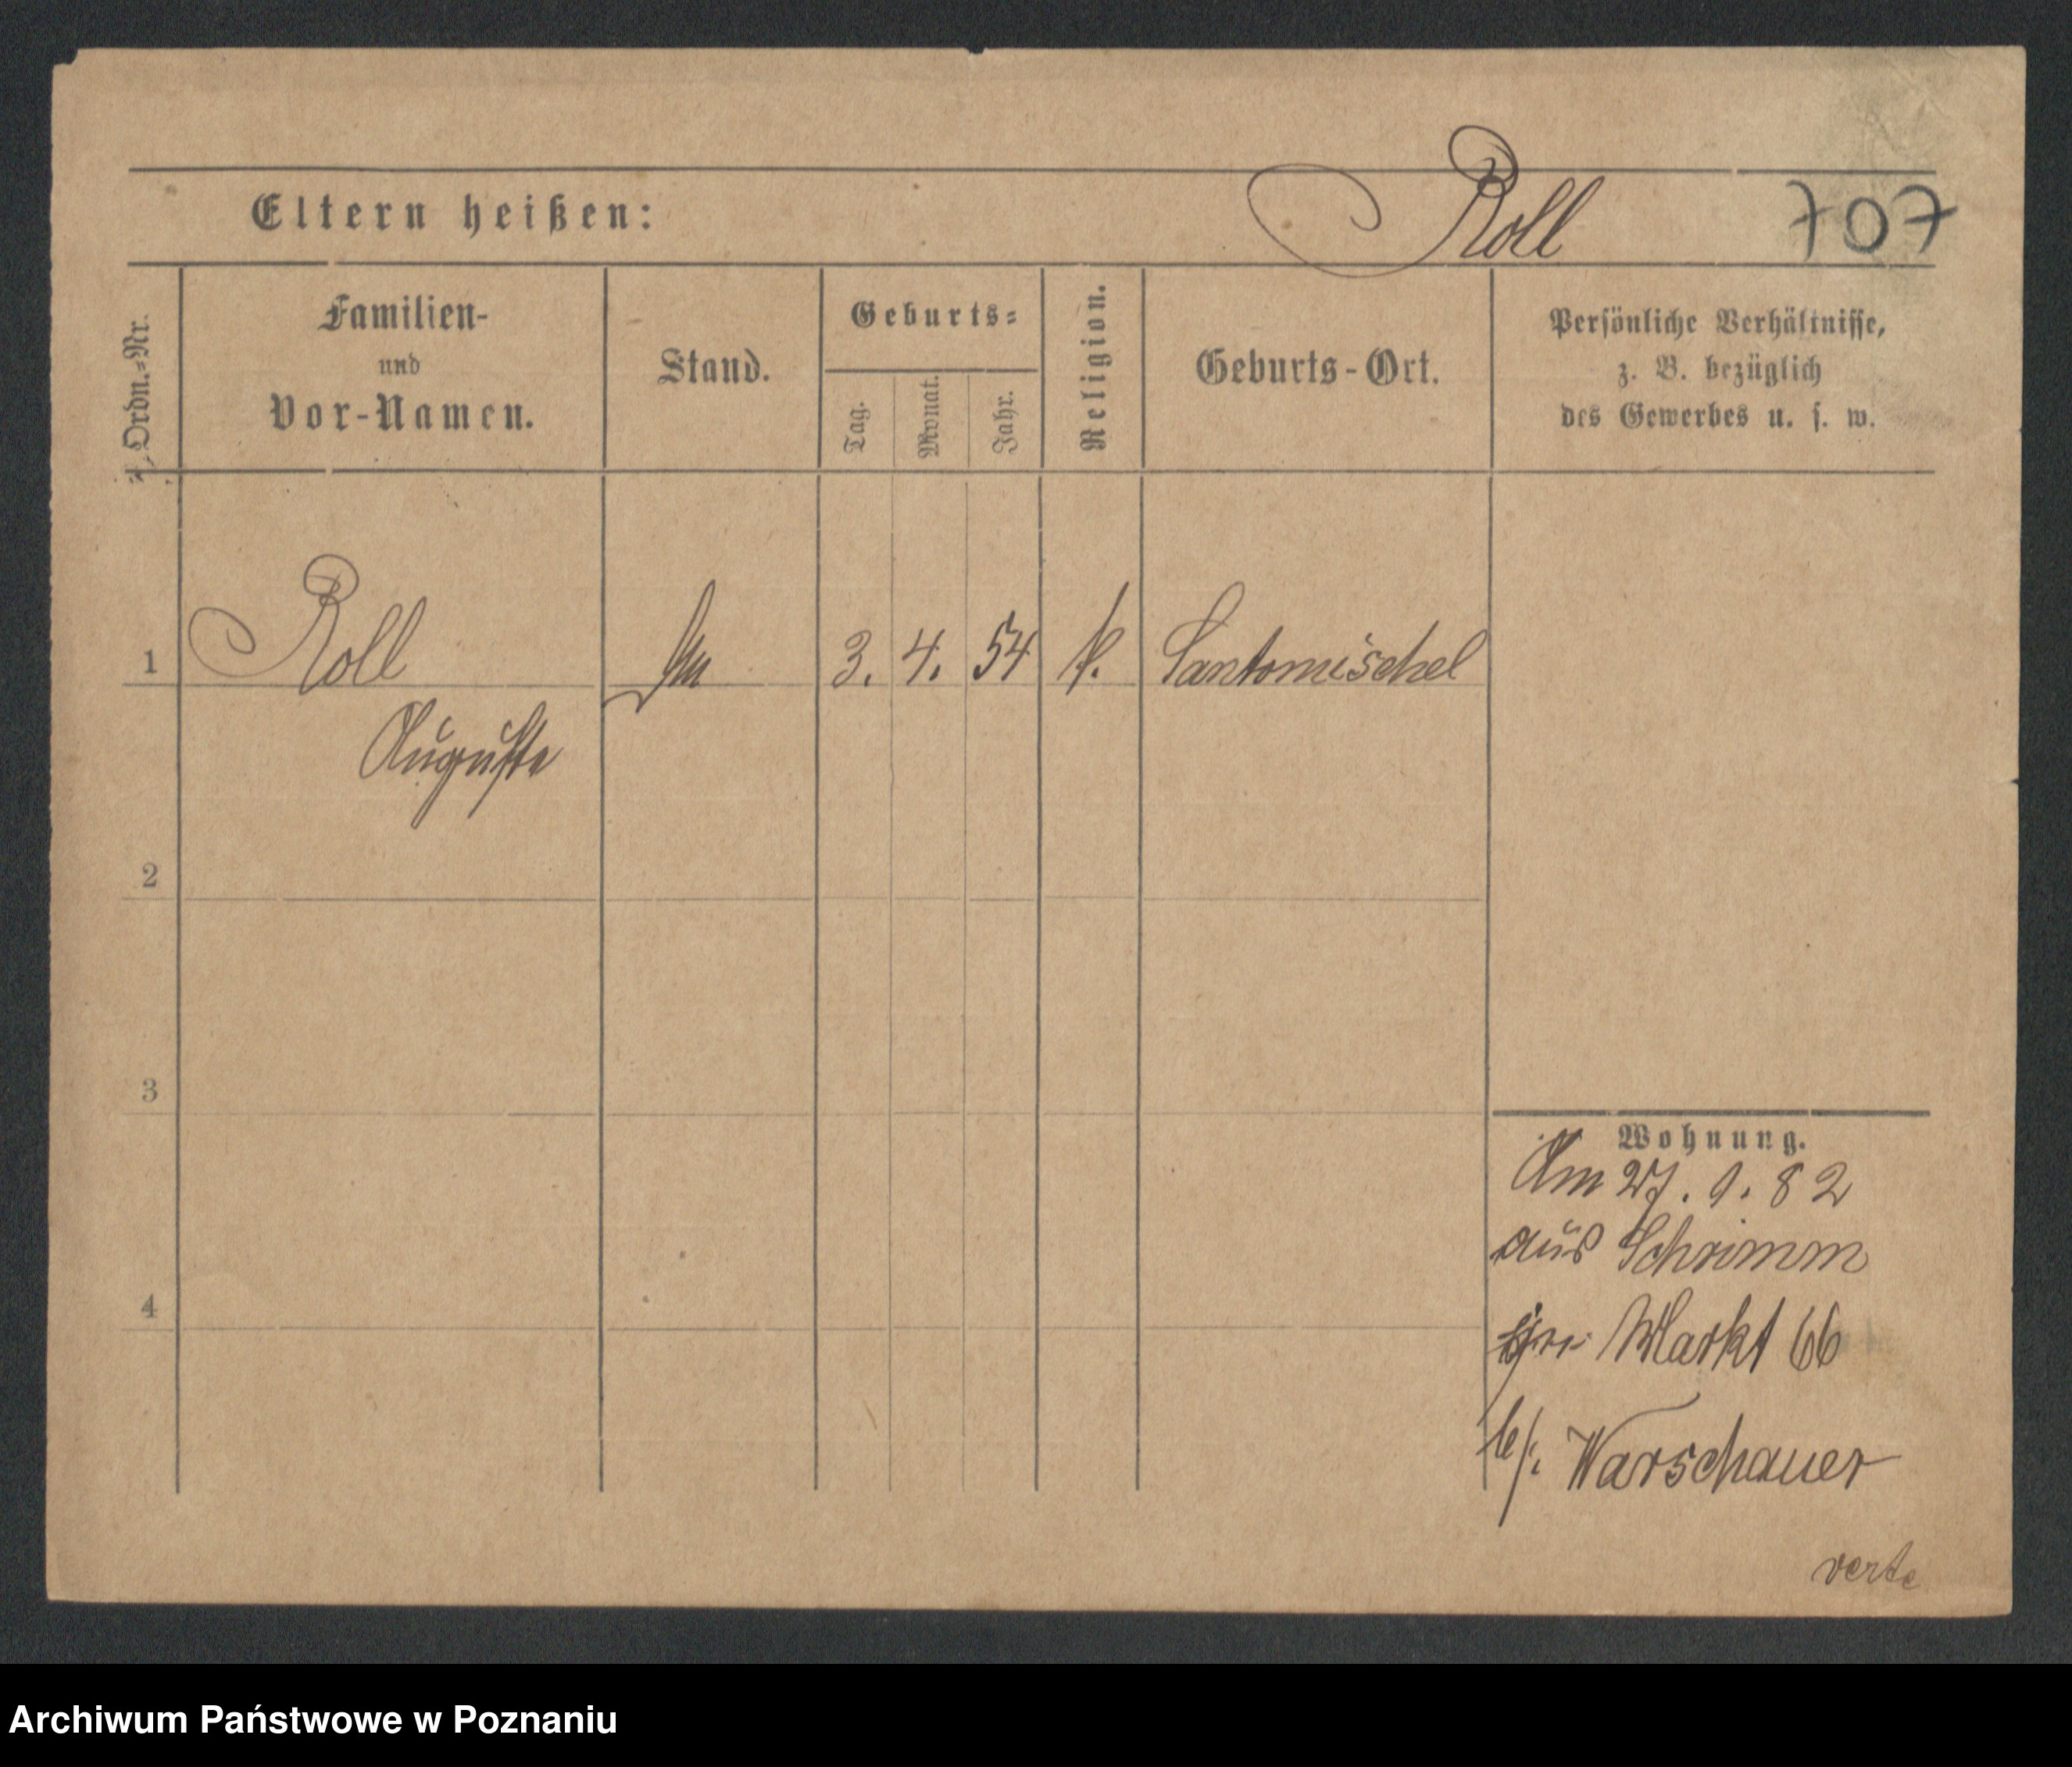 Eltern heißen: Roll 707
Ordn.=Nr.
Familien-
und
Vor-Namen.
Stand.
Geburts=
Tag.
Monat.
Jahr.
Religion.
Geburts-Ort.
Persönliche Verhältnisse,
z. B. bezüglich
des Gewerbes u. s. w.
1 Roll 3. 4. 54 Santomischel
Auguste
2
3
4
Wohnung.
Am 27. 1. 82
aus Schrimm
Markt 66
b/: Warschauer
verte
Archiwum Państwowe w Poznaniu